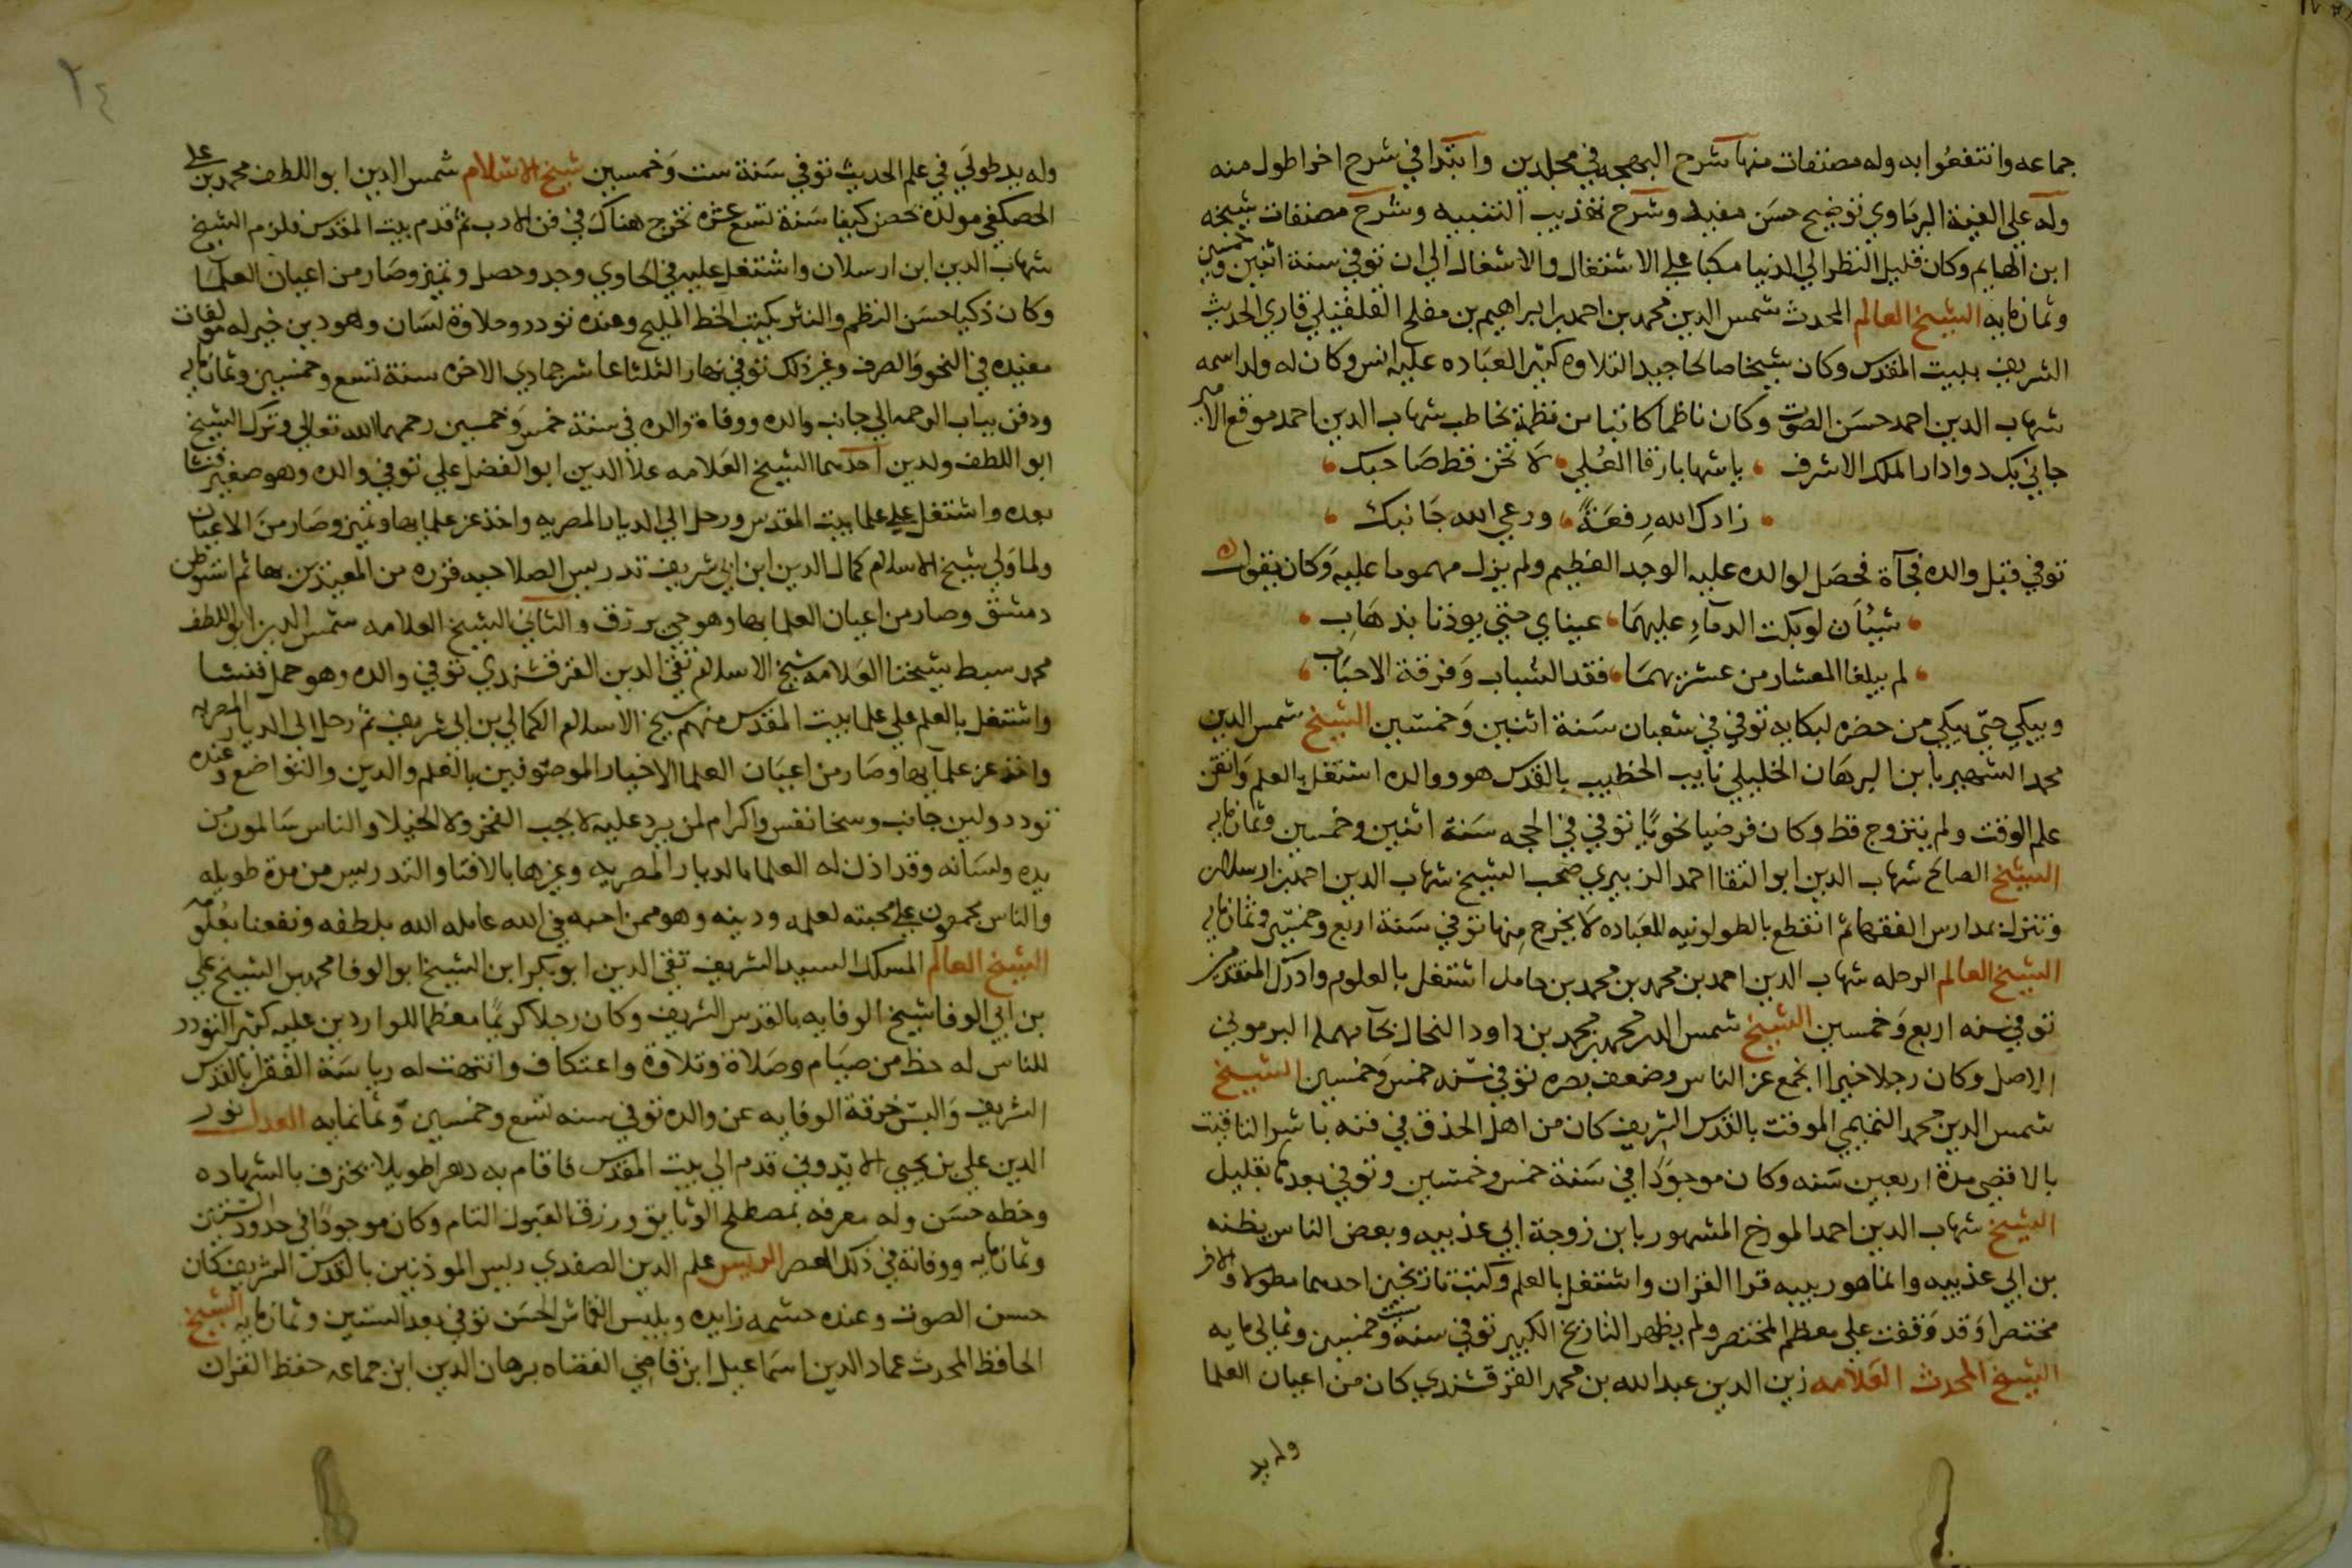 جماعه وانتفعوا به وله مصنفات منها شرح البهجه في مجلدين وابتدا في شرح اخر اطول منه
وله علي الفية البرماوي توضيح حسن مفيد وشرح تهذيب التنبيه وشرح مصنفات شيخه
ابن الهايم وكان قليل النظر الي الدنيا مكبا علي الاشتغال والاشغال الي ان توفي سنة اثنين وخمسين
وثمانمايه الشيخ العالم المحدث شمس الدين محمد بن احمد بن ابراهيم بن مفلح القلقيلي قاري الحديث
الشريف ببيت المقدس وكان شيخا صالحا جيد التلاوه كثير العباده عليه انس وكان له ولد اسمه
شهاب الدين احمد حسن الصوت وكان ناظما كاتبا من نظمه يخاطب شهاب الدين احمد موقع الامير
جاني بك دوادار الملك الاشرف يا شهابا رقا العلي لا تخن قط صاحبك
زادك الله رفعة ورعي الله جانبك
توفي قبل والده فجآة فحصل لوالده عليه الوجد العظيم ولم يزل مهموما عليه وكان يقول
شيئان لو بكت الدماء عليهما عيناي حتي يوذنا بذهاب
لم يبلغا المعشار من عشريهما فقد الشباب وفرقة الاحباب
ويبكي حتي يبكي من حضره لبكايه توفي في شعبان سنة اثنين وخمسين الشيخ شمس الدين
محمد الشهير بابن البرهان الخليلي نايب الخطيب بالقدس هو ووالده اشتغل بالعلم واتقن
علم الوقت ولم يتزوج قط وكان فرضيا نحويا توفي في الحجه سنة اثنين وخمسين وثمانمايه
الشيخ الصالح شهاب الدين ابو البقا احمد الزبيري صحب الشيخ شهاب الدين احمد بن ارسلان
وتنزل بمدارس الفقها ثم انقطع بالطولونيه للعباده لا يخرج منها توفي سنة اربع وخمسين وثمانمايه
الشيخ العالم الرحله شهاب الدين احمد بن محمد بن محمد بن حامل اشتغل بالعلوم وادرك المتقدمين
توفي سنه اربع وخمسين الشيخ شمس الدين محمد بن محمد بن داود النحال بحآ مهمله البرموني
الاصل وكان رجلا خيرا انجمع عن الناس وضعف بصره توفي سنه خمس وخمسين الشيخ
شمس الدين محمد التميمي الموقت بالقدس الشريف كان من اهل الحذق في فنه باشر التاقيت
بالاقصي مدة اربعين سنه وكان موجودا في سنة خمس وخمسين وتوفي بعدها بقليل
الشيخ شهاب الدين احمد المورخ المشهور بابن زوجة ابي عذيبه وبعض الناس يظنه
بن ابي عذيبه وانما هو ربيبه قرا القران واشتغل بالعلم وكتب تاريخين احدهما مطولا والاخر
مختصرا وقد وقفت علي معظم المختصر ولم يظهر التاريخ الكبير توفي سنة ست وخمسين وثمانمايه
الشيخ المحدث العلامه زين الدين عبد الله بن محمد القرقشندي كان من اعيان العلما
وله يد
٢٤
وله يد طولي في علم الحديث توفي سنة ست وخمسين شيخ الاسلام شمس الدين ابو اللطف محمد بن علي
الحصكفي مولده بحصن كيفا سنة تسع عشره تخرج هناك في فن الادب ثم قدم بيت المقدس فلزم الشيخ
شهاب الدين ابن ارسلان واشتغل عليه في الحاوي وجد وحصل وتميز وصار من اعيان العلمآ
وكان ذكيا حسن النظم والنثر يكتب الخط المليح وعنده تودد وحلاوة لسان وهو دين خير له مولفات
مفيده في النحو والصرف وغير ذلك توفي نهار الثلثا عاشر جمادي الاخره سنة تسع وخمسين وثمانمايه
ودفن بباب الرحمه الي جانب والده ووفاة والده في سنة خمس وخمسين رحمهما الله تعالي وترك الشيخ
ابو اللطف ولدين احدهما الشيخ العلامه علا الدين ابو الفضل علي توفي والده وهو صغير فنشا
بعده واشتغل علي علما بيت المقدس ورحل الي الديار المصريه واخذ عن علمايها وتميز وصار من الاعيان
ولما ولي شيخ الاسلام كمال الدين ابن ابي شريف تدريس الصلاحيه قرره من المعيدين بها ثم استوطن
دمشق وصار من اعيان العلما بها وهو حي يرزق والثاني الشيخ العلامه شمس الدين ابو اللطف
محمد سبط شيخنا العلامه شيخ الاسلام تقي الدين القرقشندي توفي والده وهو حمل فنشا
واشتغل بالعلم علي علما بيت المقدس منهم شيخ الاسلام الكمالي بن ابي شريف ثم رحل الي الديار المصريه
واخذ عن علمايها وصار من اعيان العلما الاخيار الموصوفين بالعلم والدين والتواضع وعنده
تودد ولين جانب وسخا نفس واكرام لمن يرد عليه لا يحب الفخر ولا الخيلا والناس سالمون من
يده ولسانه وقد اذن له العلما بالديار المصريه وغيرها بالافتا والتدريس من مدة طويله
والناس مجمعون علي محبته لعلمه ودينه وهو ممن احبه في الله عامله الله بلطفه ونفعنا بعلومه
الشيخ العالم المسلك السيد الشريف تقي الدين ابو بكر ابن الشيخ ابو الوفا محمد بن الشيخ علي
بن ابي الوفا شيخ الوفايه بالقدس الشريف وكان رجلا كريما معظما للواردين عليه كثير التودد
للناس له حظ من صيام وصلاة وتلاوة واعتكاف وانتهت له رياسة الفقرا بالقدس
الشريف والبس خرقة الوفايه عن والده توفي سنه تسع وخمسين وثمانمايه العدل نور
الدين علي بن يحيي الايدوني قدم الي بيت المقدس فاقام به دهرا طويلا يحترف بالشهاده
وخطه حسن وله معرفه بمصطلح الوثايق ورزق القبول التام وكان موجودا في حدود الستين
وثمانمايه ووفاته في ذلك العصر الريس علم الدين الصفدي ريس الموذنين بالقدس الشريف كان
حسن الصوت وعنده حشمه زايده ويلبس القماش الحسن توفي بعد الستين وثمانمايه الشيخ
الحافظ المحدث عماد الدين اسماعيل ابن قاضي القضاه برهان الدين ابن جماعه حفظ القران